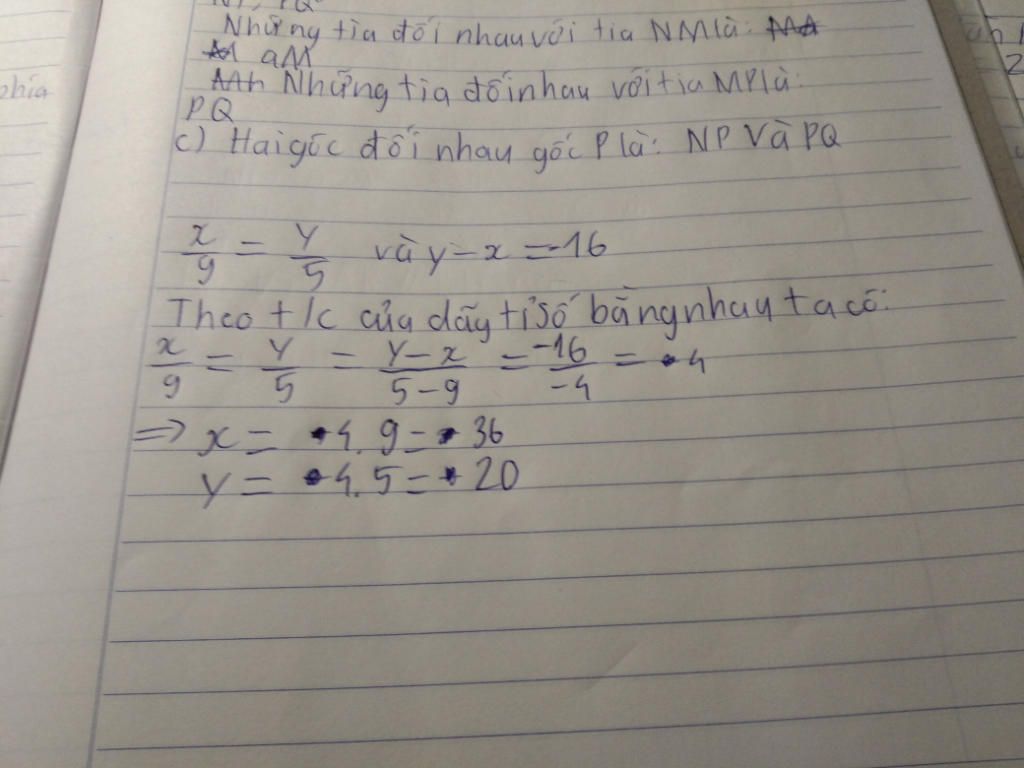 Những tia đối nhau với tia NM là:
aM
Những tia đối nhau với tia MP là:
PQ
c) Hai gốc đối nhau gốc P là: NP Và PQ
x/9 = y/5 và y - x = -16
Theo t/c của dãy tỉ số bằng nhau ta có:
x/9 = y/5 = y-x/5-9 = -16/-4 = 4
=> x = 4.9 = 36
y = 4.5 = 20
phía
2